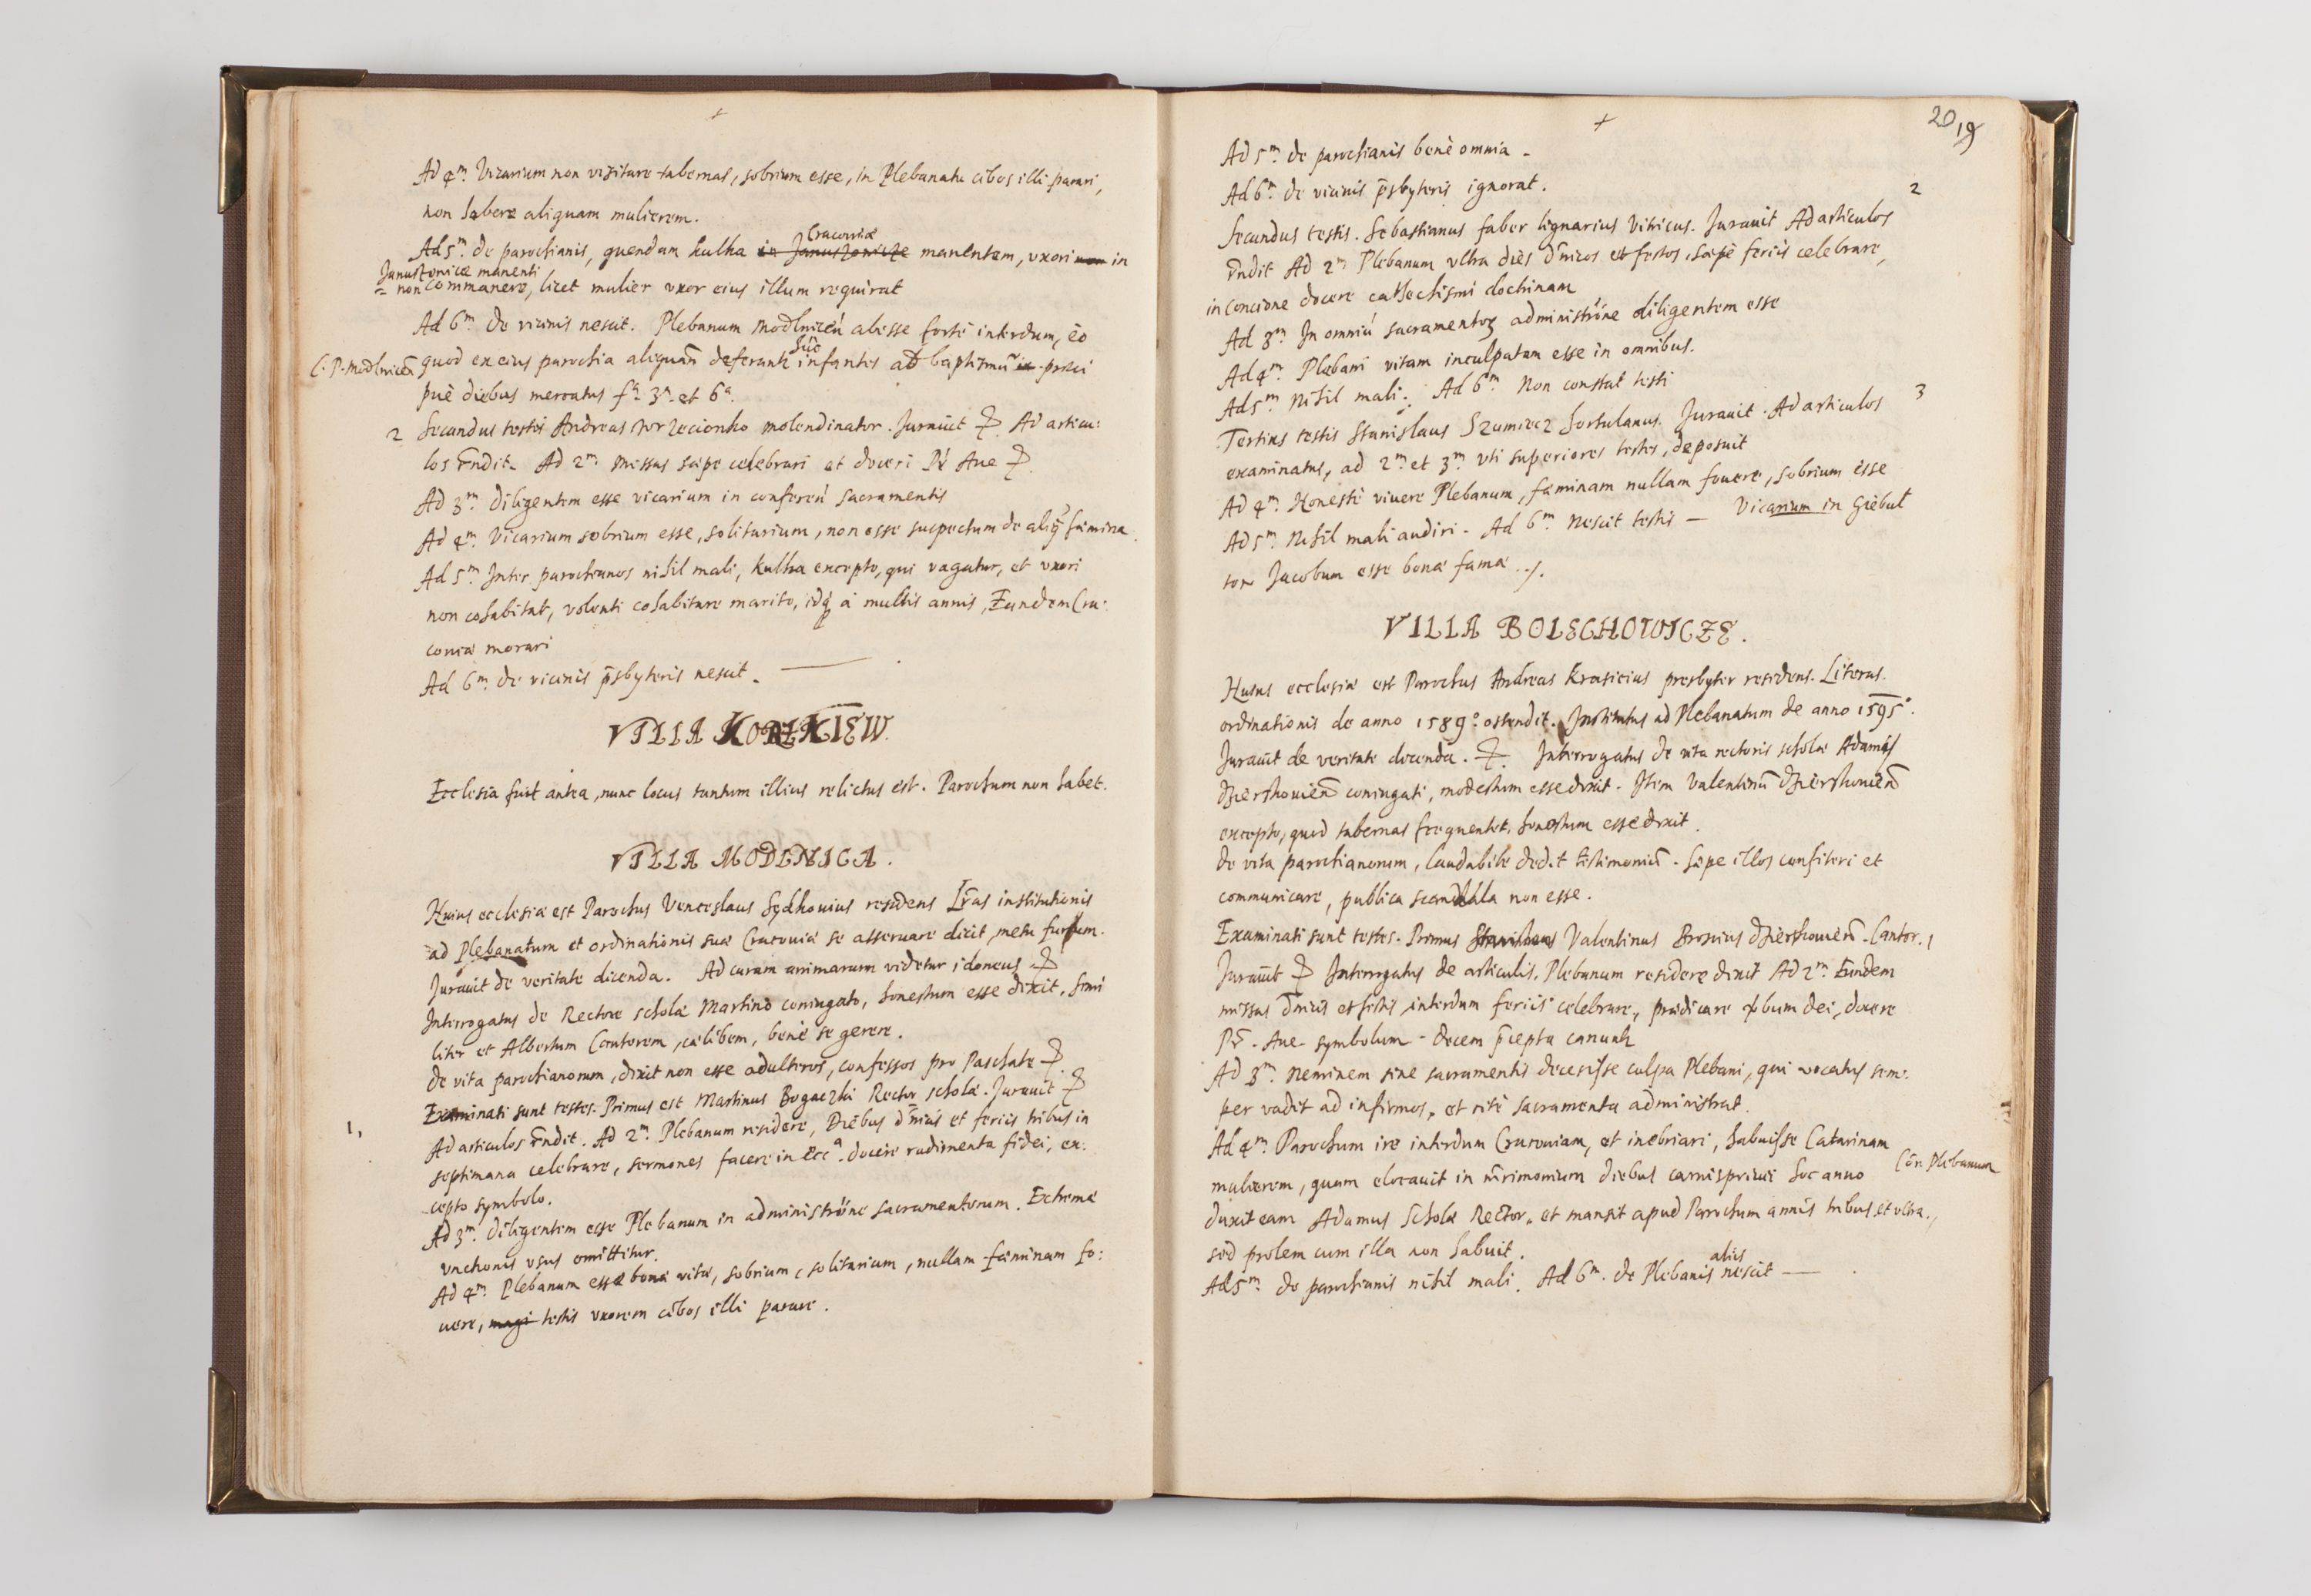 +
Ad 4m. Vicarium non visitare tabernas, sobrium esse, in Plebanatu cibos illi parari,
non habere aliquam mulierem.
Cracouiæ
Ad 5m. de parochianis, quendam kulha in Januszowicze manentem, vxori non in
Januszouicæ manenti
= non commanere, licet mulier vxor eius illum requirat
Ad 6m. de vicinis nescit. Plebanum Modlnicen̄ abesse fortè interdum, eò
huc
C. P. Modlnicen̄ quod ex eius parochia aliquan̄ deferant infantes ad baptismū in præci
puè diebus mercatus fa. 3a. et 6a.
2 Secundus testis Andreas molendinator. Jurauit Ad articu:
los r̄ndit. Ad 2m. Missas sæpe celebrari et doceri Pr̄ Aue
Ad 3m. diligentem esse vicarium in conferen̄ sacramentis
Ad 4m. Vicarium sobrium esse, solitarium, non esse suspectum de aliq̄ fæmina.
Ad 5m. Inter parochianos nihil mali, kulha excepto, qui vagatur, et vxori
non cohabitat, volenti cohabitare marito, idq́ à multis annis, Eundem Cra:
couiæ morari
Ad 6m. de vicinis p̄sbyteris nescit. —
VILLA KORZKIEW.
Ecclesia fuit antea, nunc locus tantum illius relictus est. Parochum non habet.
VILLA MODLNICA.
Huius ecclesiæ est Parochus Venceslaus Sydkouius residens Lr̄as institutionis
ad Plebanatum et ordinationis suæ Cracouiæ se asseruare dicit, metu furum.
Jurauit de veritate dicenda. Ad curam animarum videtur idoneus
Interrogatus de Rectore scholæ Martino coniugato, honestum esse dixit, simi
liter et Albertum Cantorem, cælibem, benè se gerere.
de vita parochianorum, dixit non esse adulteros, confessos pro Paschate
Examinati sunt testes. Primus est Martinus Bogaczki Rector scholæ. Jurauit
1, Ad articulos r̄ndit. Ad 2m. Plebanum residere, Diebus d̄nicis et feriis tribus in
septimana celebrare, sermones facere in Ecca. docere rudimenta fidei, ex:
cepto symbolo.
Ad 3m. diligentem esse Plebanum in administrōne sacramentorum. Extremæ
vnctionis vsus omittitur.
Ad 4m. Plebanum esse bonæ vitæ, sobrium, solitarium, nullam fæminam fo:
uere, magi testis vxorem cibos illi parare.
+
20 19
Ad 5m. de parochianis benè omnia.
Ad 6m. de vicinis p̄sbyteris ignorat.
Secundus testis. Sebastianus faber lignarius Vitricus. Jurauit Ad articulos 2
r̄ndit Ad 2m Plebanum vltra dies d̄nicos et festos, sæpè feriis celebrare,
in concione docere cathechismi doctrinam
Ad 3m In omniū sacramentoꝝ administrōne diligentem esse
Ad 4m. Plebani vitam inculpatam esse in omnibus.
Ad 5m. Nihil mali. Ad 6m. Non constat testi
Tertius testis Stanislaus Szumiecz hortulanus. Jurauit. Ad articulos 3
examinatus, ad 2m. et 3m. vti superiores testes, deposuit
Ad 4m. Honestè viuere Plebanum, fæminam nullam fouere, sobrium esse
Ad 5m. Nihil mali audiri. Ad 6m. Nescit testis — Vicarium in Giebul
tow Jacobum esse bonæ famæ ./.
VILLA BOLECHOWICZE.
Huius ecclesiæ est Parochus Andreas Krasicius presbyter residens. Literas
ordinationis de anno 1589o. ostendit. Institutus ad Plebanatum de anno 1595o.
Jurauit de veritate dicenda. Interrogatus de vita rectoris scholæ Adami
Dzierzkouien̄ coniugati, modestum esse dixit. Item Valentinū Dzierzkouien̄
excepto, quod tabernas frequentet, honestum esse dixit.
de vita parochianorum, laudabile dedit testimoniū. Sæpe illos confiteri et
communicare, publica scandala non esse.
Examinati sunt testes. Primus Stanislaus Valentinus Dzierzkouien̄ Cantor. 1
Jurauit Interrogatus de articulis. Plebanum residere dixit Ad 2m. Eundem
missas d̄nicis et festis interdum feriis celebrare, prædicare vbum dei, docere
Pr̄. Aue symbolum decem p̄cepta canunt
Ad 3m. Neminem sine sacramentis decessisse culpa Plebani, qui vocatus sem:
per vadit ad infirmos, et ritè sacramenta administrat.
Ad 4m. Parochum ire interdum Cracouiam, et inebriari, habuisse Catarinam
Con̄ Plebanum
mulierem, quam elocauit in mr̄imonium diebus carnispriuii hoc anno
duxit eam Adamus Scholæ Rector, et mansit apud Parochum annis tribus et vltra.,
sed prolem cum illa non habuit.
aliis
Ad 5m. de parochianis nihil mali. Ad 6m. de Plebanis nescit —